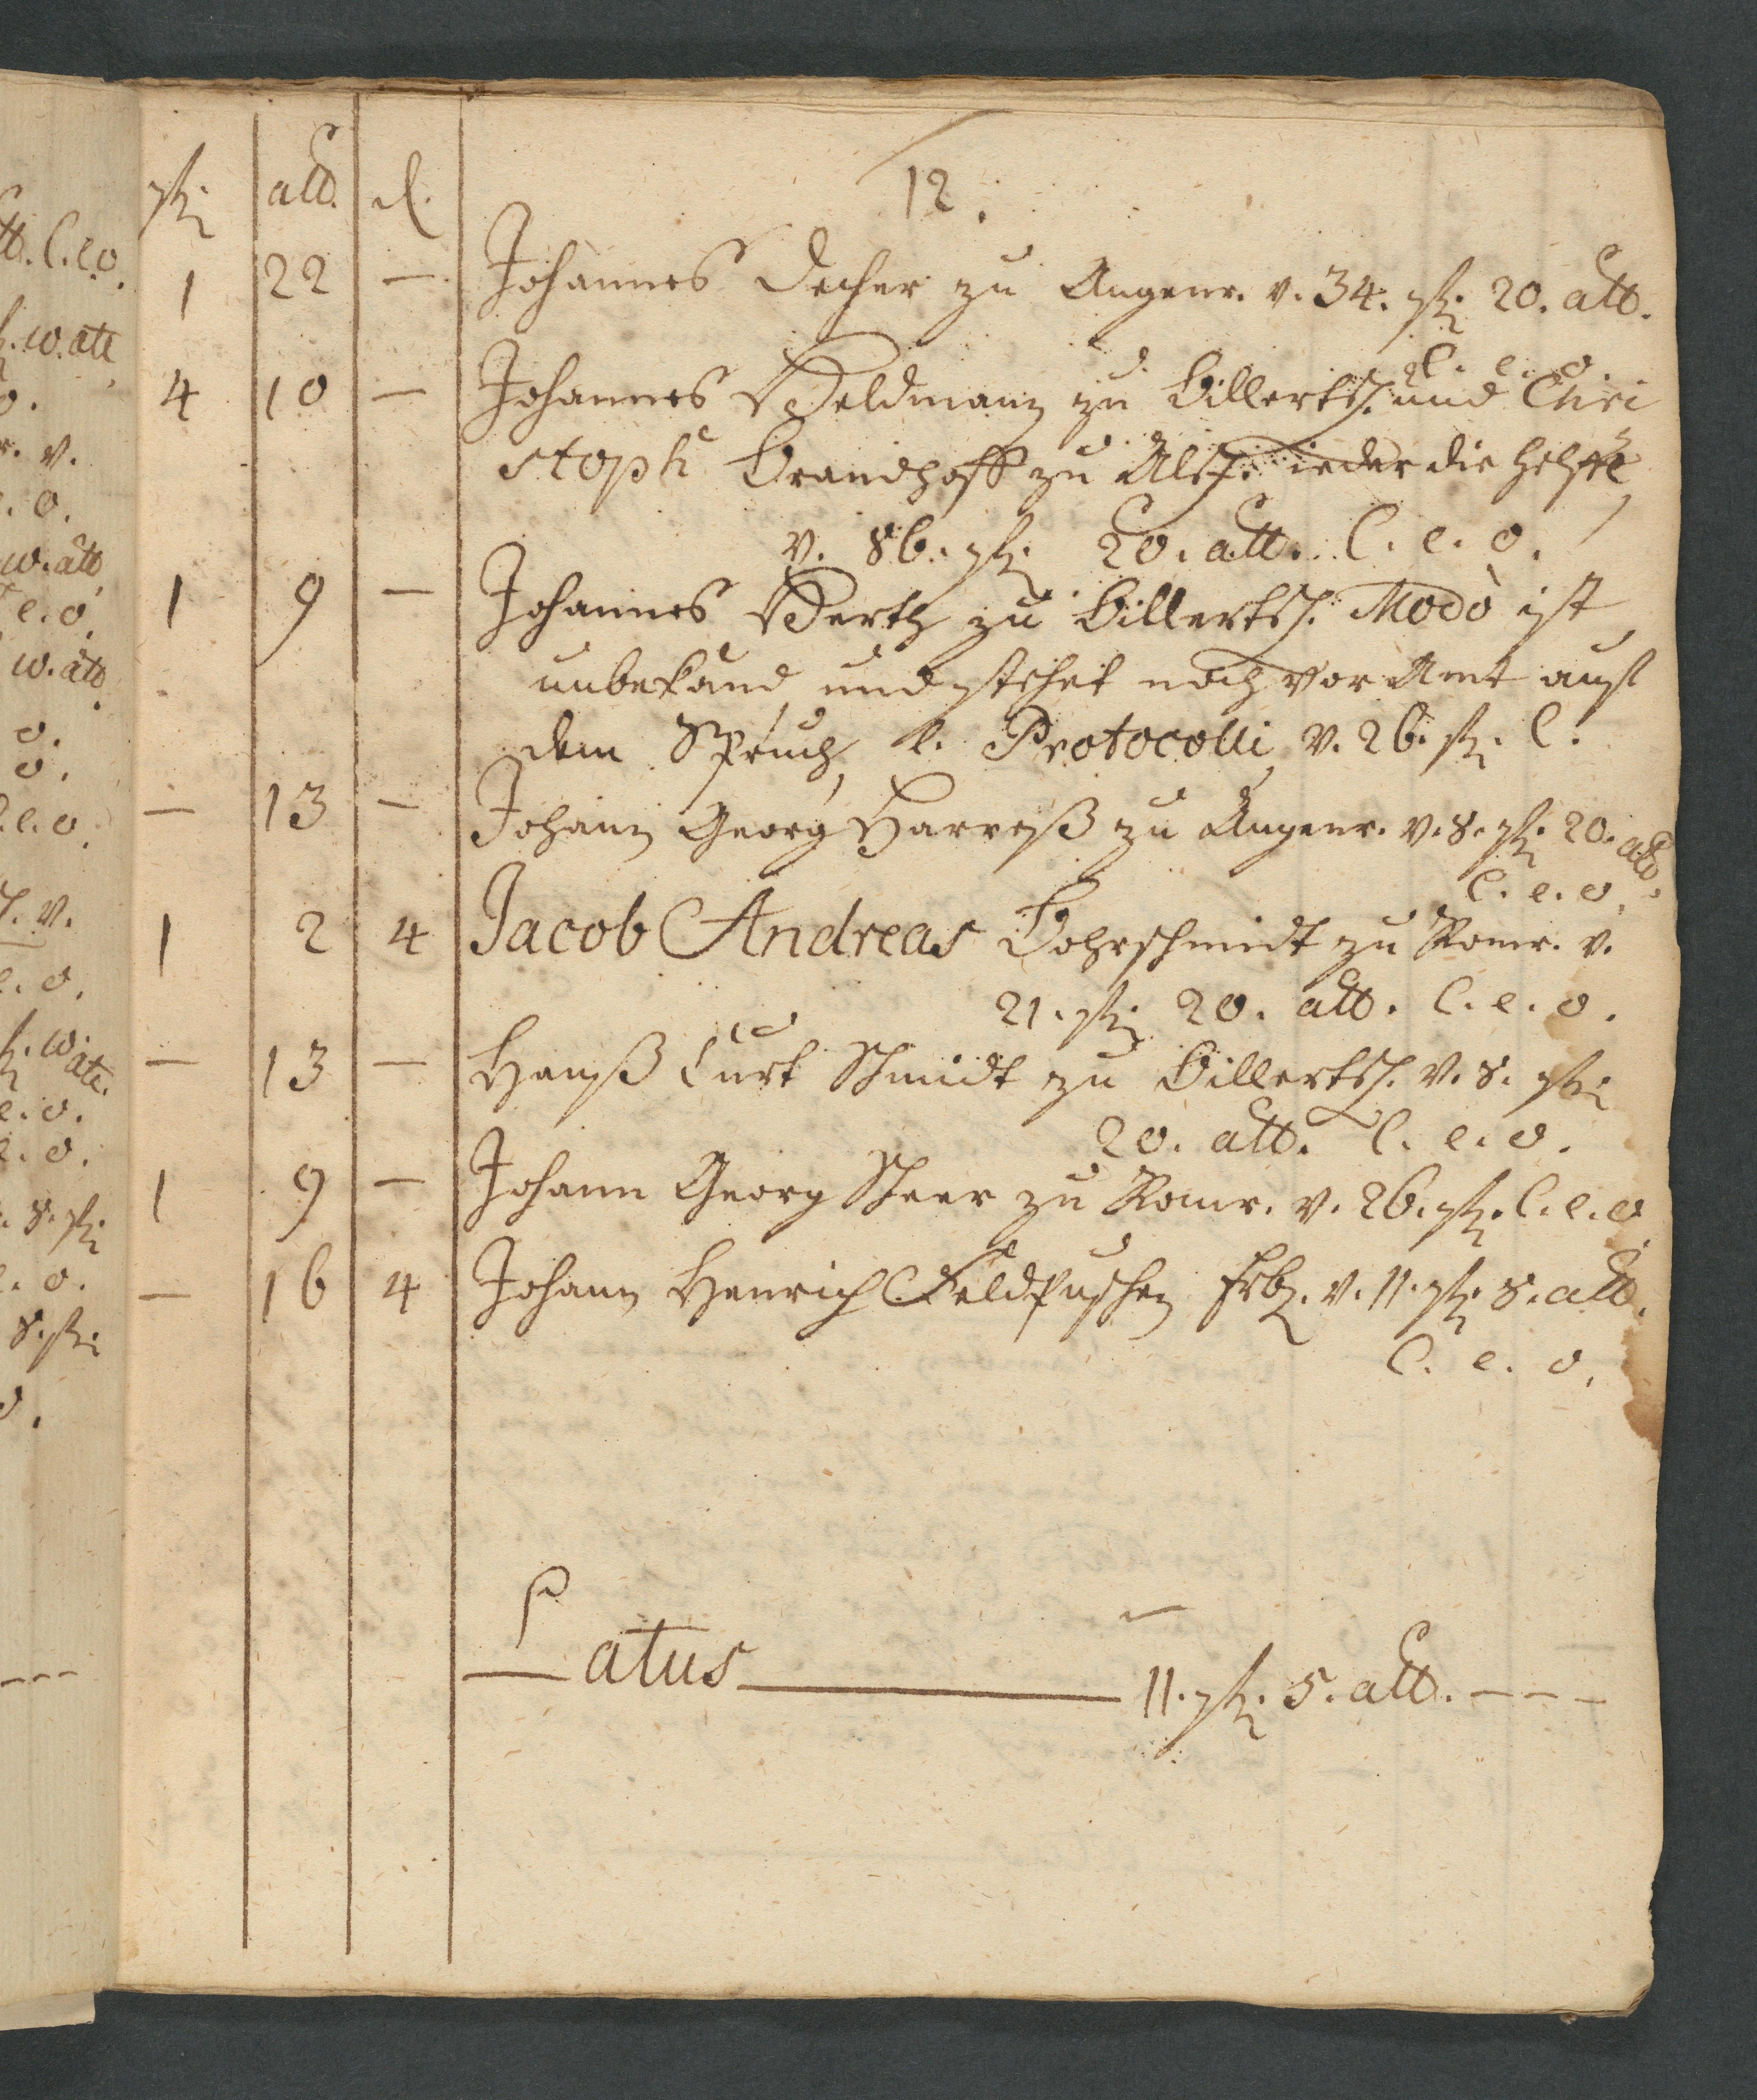 12.
rthl. alb. d.
1 22 — Johannes Decher zu Angenr. v. 34. rthl. 20. alb.
l. e. o.
4 10 — Johannes Weldmann zu Billertsh. und Chri
stoph Brandhoff zu Alsf. ieder die helffte
v. 86. rthl. 20. alb. l. e. o.
1 9 — Johannes Werth zu Billertsh. Modò ist
unbekand und stehet noch vor Amt auf
dem Spruch, l. Protocolli v. 26. rthl. l.
— 13 — Johann Georg Harreß zu Angenr. v. 8. rthl. 20. alb.
l. e. o.
1 2 4 Jacob Andreas Bohrschmidt zu Romr. v.
21. rthl. 20. alb. l. e. o.
— 13 — Hanß Curt Schmidt zu Billertsh. v. 8. rthl.
20. alb. l. e. o.
1 9 — Johann Georg Scheer zu Romr. v. 26. rthl. l. e. o.
— 16 4 Johann Henrich Feldpuschen v. 11. rthl. 8. alb.
l. e. o.
Latus 11. rthl. 5. alb. - - -